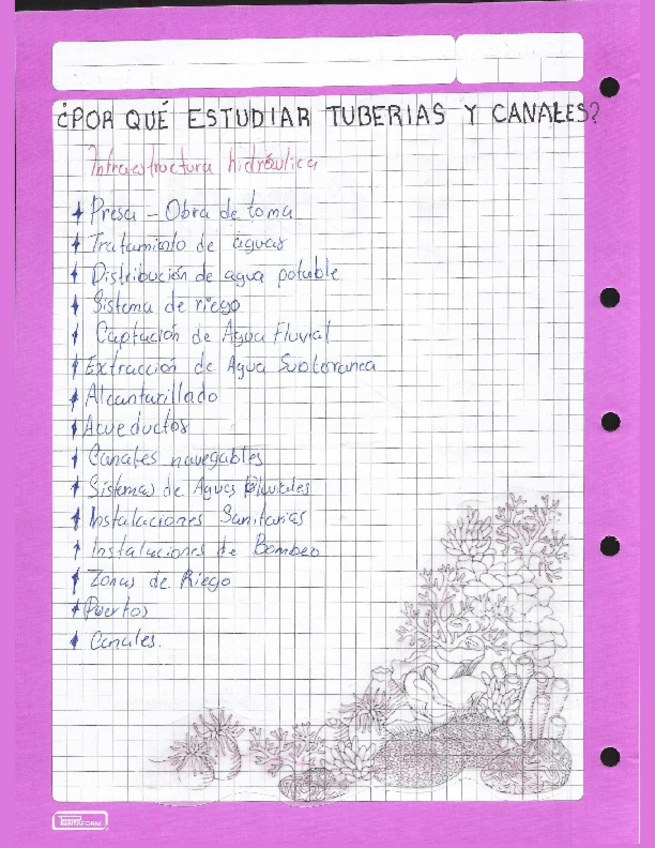 ¿POR QUÉ ESTUDIAR TUBERIAS Y CANALES?
Infraestructura hidráulica
Presa - Obra de toma
Tratamiento de aguas
Distribución de agua potable
Sistema de riego
Captación de Agua Fluvial
Extracción de Agua Subterranea
Alcantarillado
Acueductos
Canales navegables
Sistemas de Aguas Pluviales
Instalaciones Sanitarias
Instalaciones de Bombeo
Zonas de Riego
Puertos
Canales.